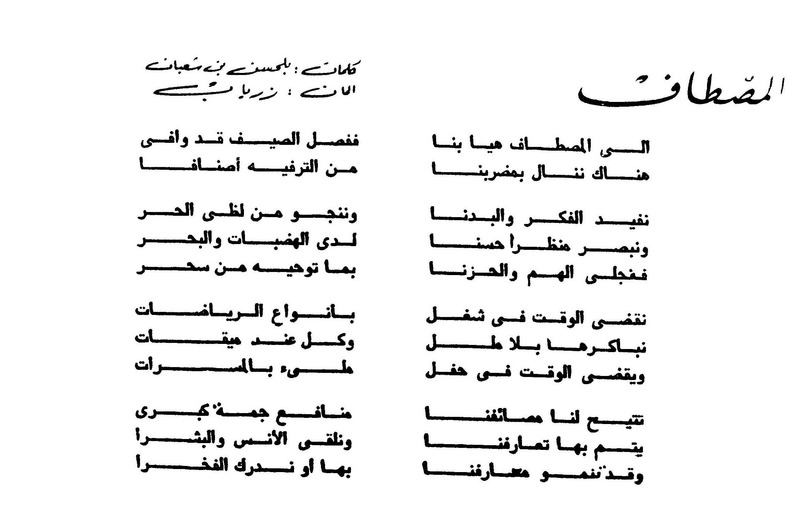 المصطاف
كلمات : بلحسن بن شعبان
الحان : زرياب
الى المصطاف هيا بنا ففصل الصيف قد وافى
هناك ننال بمضربنا من الترفيه أصنافا
نفيد الفكر والبدنا وننجو من لظى الحر
ونبصر منظرا حسنا لدى الهضبات والبحر
فنجلى الهم والحزنا بما توحيه من سحر
نقضى الوقت فى شغل بأنواع الرياضات
نباكرها بلا طل وكل عند ميقات
ويقضى الوقت فى حفل ملىء بالمسرات
تتيح لنا مصائفنا منافع جمة كبرى
يتم بها تعارفنا ونلقى الأنس والبشرا
وقد تنمو معارفنا بها أو ندرك الفخرا